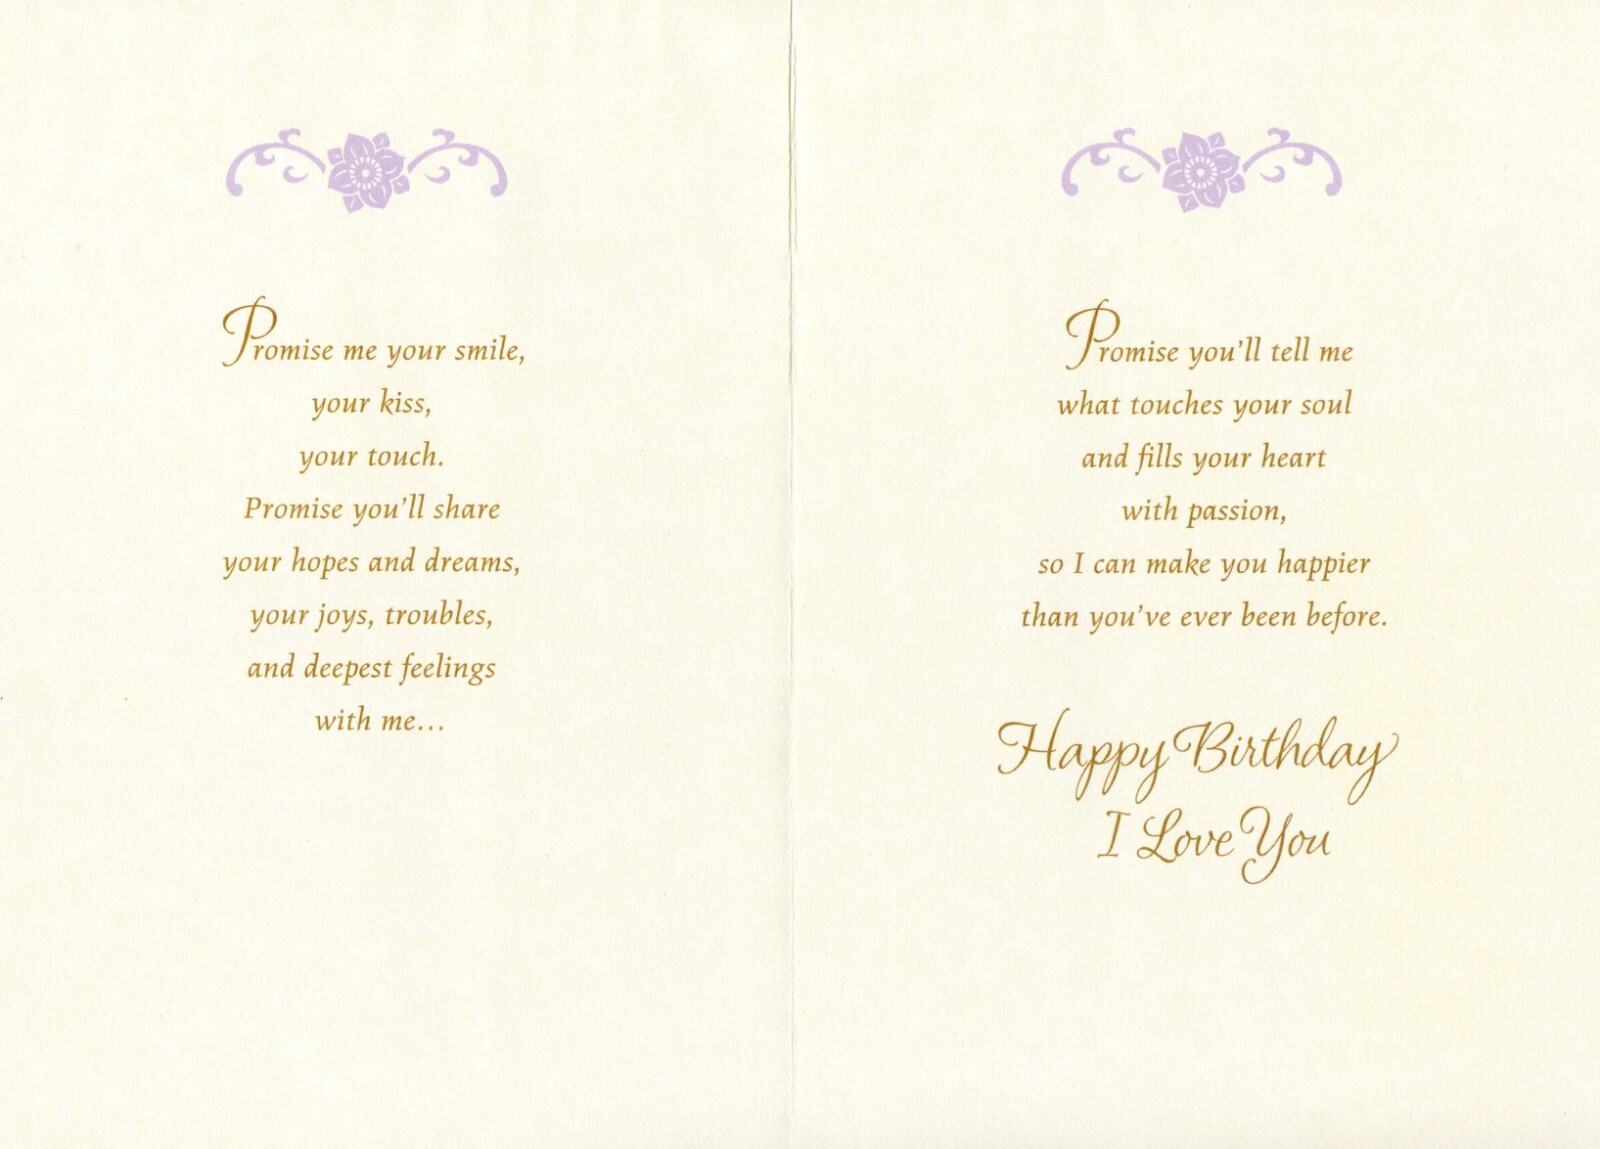 Promise me your smile,
your kiss,
your touch.
Promise you'll share
your hopes and dreams,
your joys, troubles,
and deepest feelings
with me...
Promise you'll tell me
what touches your soul
and fills your heart
with passion,
so I can make you happier
than you've ever been before.
Happy Birthday
I Love You